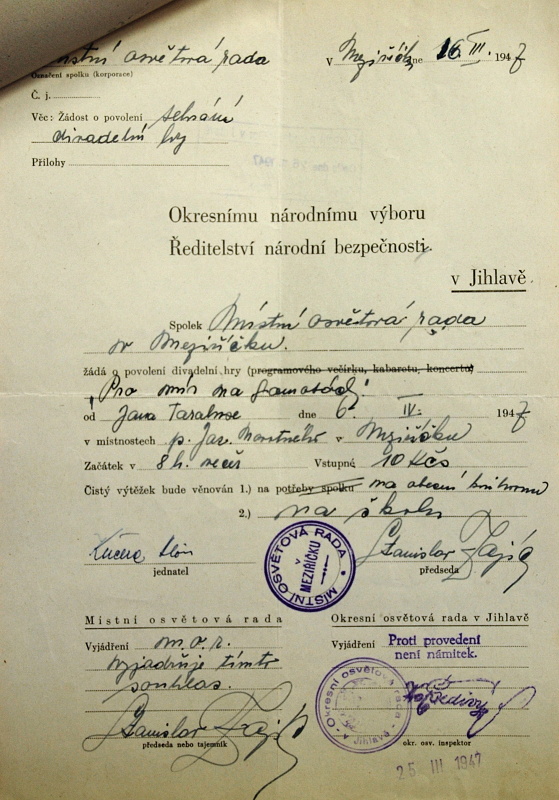 Místní osvětová rada
v Meziříčku dne 16. III. 1947
Označení spolku (korporace)
Č. j.
Věc: Žádost o povolení sehrání
divadelní hry
Přílohy
Okresnímu národnímu výboru
Ředitelství národní bezpečnosti
v Jihlavě.
Spolek Místní osvětová rada
v Meziříčku.
žádá o povolení divadelní hry (programového večírku, kabaretu, koncertu)
"Pro mír na
od Jana dne 6. IV. 1947
v místnostech p. Jar. Novotného v Meziříčku
Začátek v 8 h. večer Vstupné 10 Kčs
Čistý výtěžek bude věnován 1.) na potřeby spolku na obecní knihovnu
2.) na školu
Kučera Alois Stanislav Zajíc
jednatel předseda
MÍSTNÍ OSVĚTOVÁ RADA
MEZIŘÍČKU
Místní osvětová rada
Vyjádření m. o. r.
vyjadřuje tímto
souhlas.
Stanislav Zajíc
předseda nebo tajemník
Okresní osvětová rada v Jihlavě
Vyjádření Proti provedení
není námitek.
Okresní osvětová rada
v Jihlavě
okr. osv. inspektor
25 III 1947